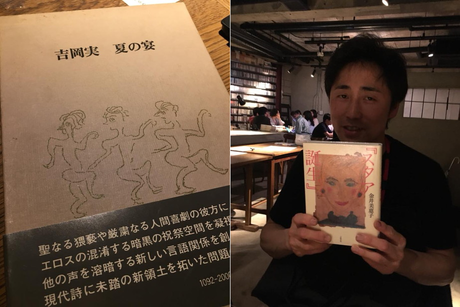 吉岡実 夏の宴
聖なる猥褻や厳粛なる人間喜劇の彼方に
エロスの混淆する暗黒の祝祭空間を凝視
他の声を溶暗する新しい言語関係を創
現代詩に未踏の新領土を拓いた問題
1092-2000
『スタア
誕生』
金井美恵子